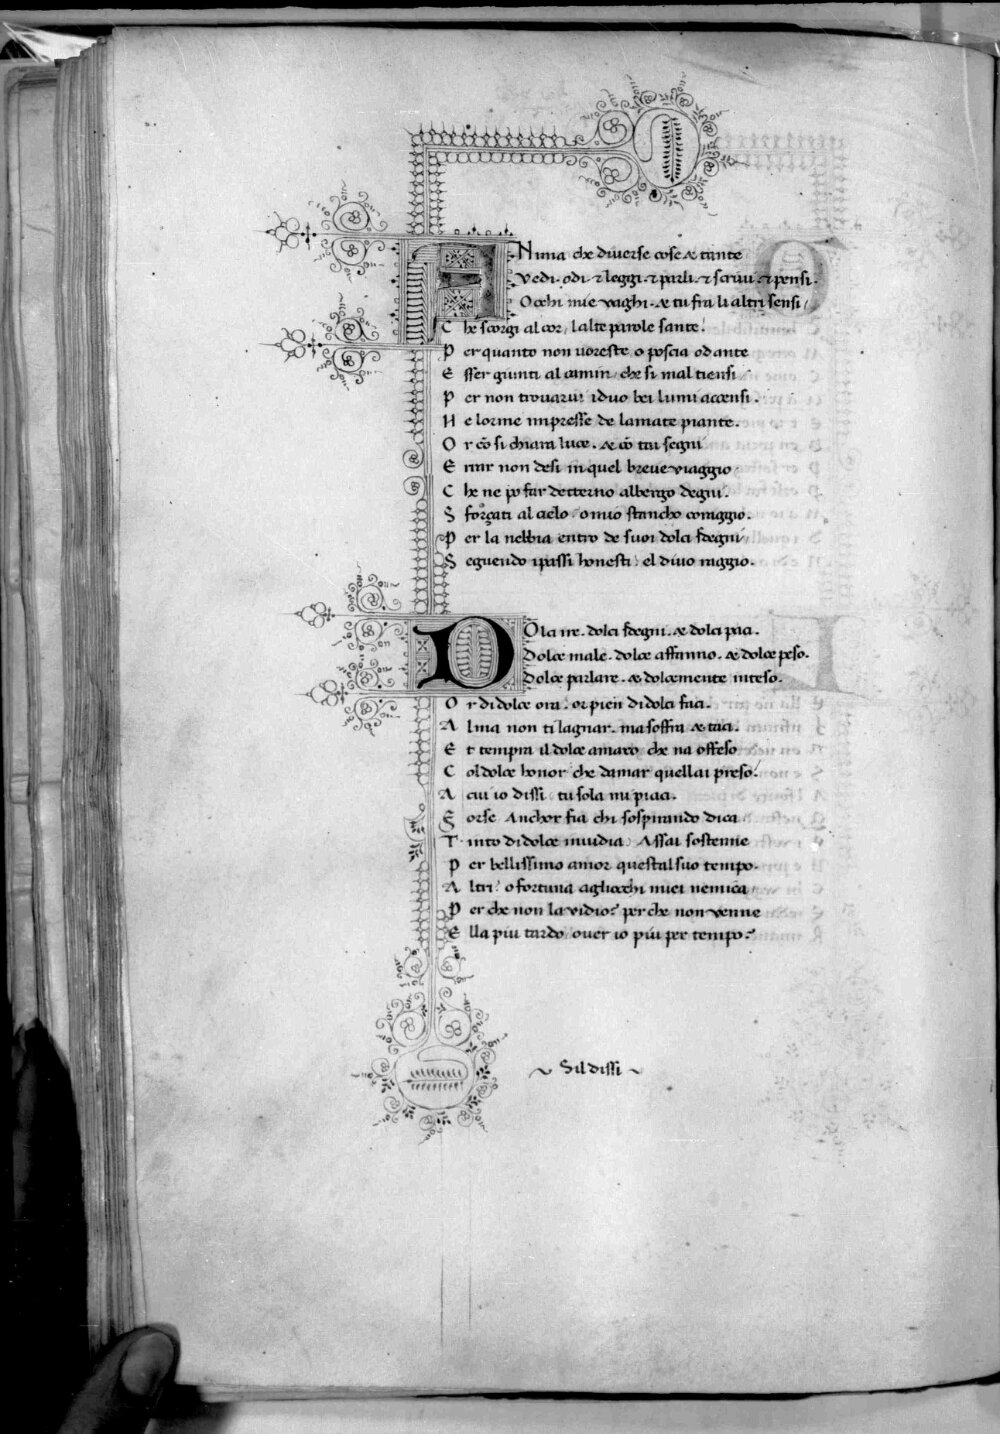 ANima che diverse cose & tante
Vedi. odi. & leggi. & parli. & scrivi. & pensi.
Occhi mie vaghi. & tu fra li altri sensi
Che scorgi al cor, lalte parole sante:
Per quanto non voreste o poscia od ante
Esser giunti al camin, che si mal tiensi
Per non trovarvi i duo bei lumi accensi.
Ne lorme impresse de lamate piante.
Or cō si chiara luce. & cō tai segni
Errar non desi in quel breve viaggio
Che ne po far detterno albergo degni.
Sforçati al cielo o mio stancho coraggio.
Per la nebbia entro de suoi dolci sdegni
Seguendo i passi honesti: el divo raggio.
DOlci ire. dolci sdegni. & dolci paci.
Dolce male. dolce affanno. & dolce peso.
Dolce parlare. & dolcemente inteso.
Or di dolce ora: or pien di dolci faci.
Alma non ti lagnar. ma soffra & taci.
Et tempra il dolce amaro che na offeso
Col dolce honor che damar quella i preso:
A cui io dissi tu sola mi piaci.
Forse Anchor fia chi sospirando dica
Tinto di dolce invidia: Assai sostenne
Per bellissimo amor quest al suo tempo.
Altri: o fortuna agliocchi miei nemica
Per che non la vidio? per che non venne
Ella piu tardo over io piu per tempo?
~ Sil dissi ~